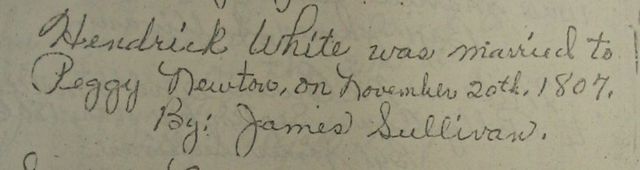 Hendrick White was married to
Peggy Newton, on November 20th, 1807.
By: James Sullivan.